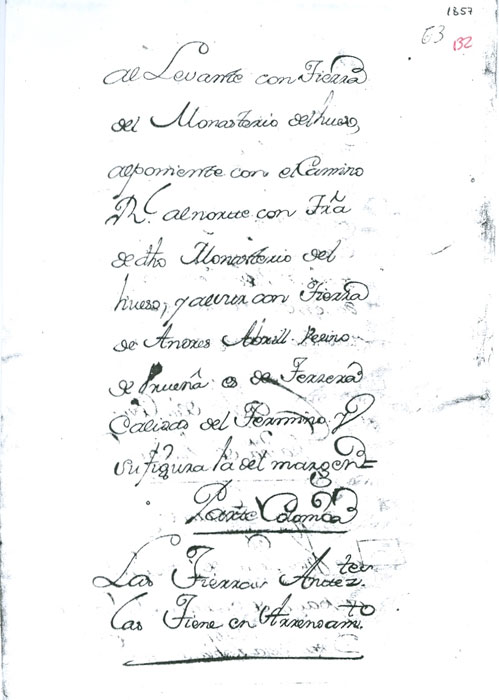 1857
63
132
al Levante con Tierra
del Monasterio del hueso,
al poniente con el Camino
Rl. al norte con Tra
de dho Monasterio del
hueso, y a sur con Tierra
de Andres Abrill Vecino
de es de Tercera
Calidad del Termino y
su figura la del margen=
Parte
Las Tierras Antez.tes
las Tiene en Arrendam.to